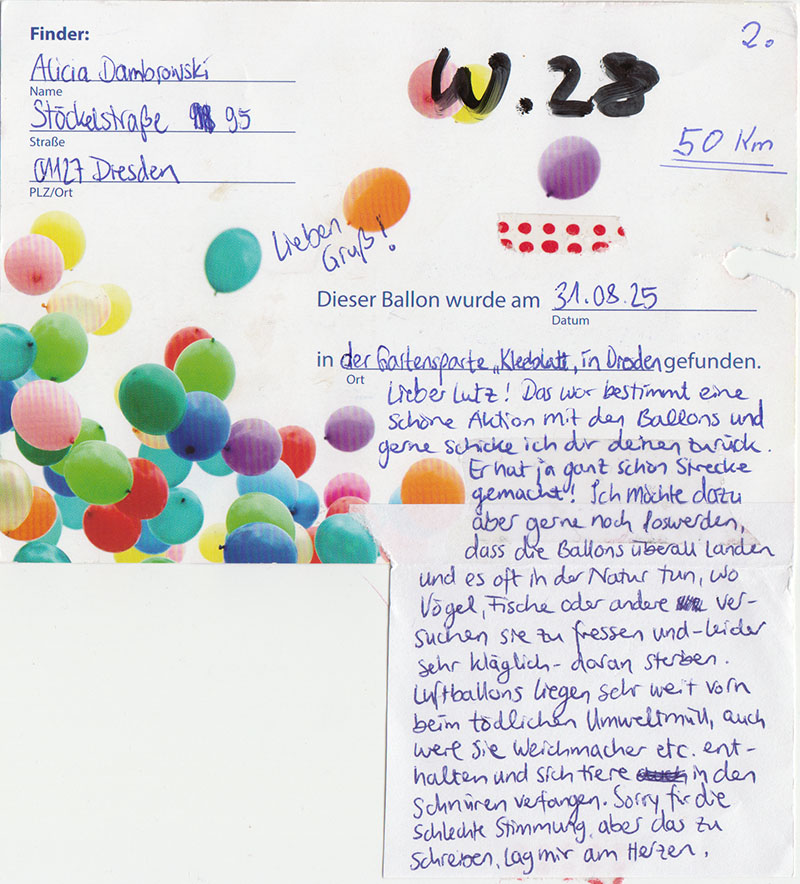 Finder:
Alicia Dambrowski
Name
Stöckelstraße 95
Straße
01127 Dresden
PLZ/Ort
2.
W.28
50 Km
Lieben
Gruß!
Dieser Ballon wurde am 31.08.25
Datum
in der Gartensparte „Kleeblatt, in Dresden gefunden.
Ort
Lieber Lutz! Das war bestimmt eine
schöne Aktion mit den Ballons und
gerne schicke ich dir deinen zurück.
Er hat ja ganz schön Strecke
gemacht! Ich möchte dazu
aber gerne noch loswerden,
dass die Ballons überall landen
und es oft in der Natur tun, wo
Vögel, Fische oder andere ver-
suchen sie zu fressen und - leider
sehr kläglich - daran sterben.
Luftballons liegen sehr weit vorn
beim tödlichen Umweltmüll, auch
weil sie Weichmacher etc. ent-
halten und sich tiere in den
Schnüren verfangen. Sorry für die
schlechte Stimmung, aber das zu
schreiben, lag mir am Herzen.